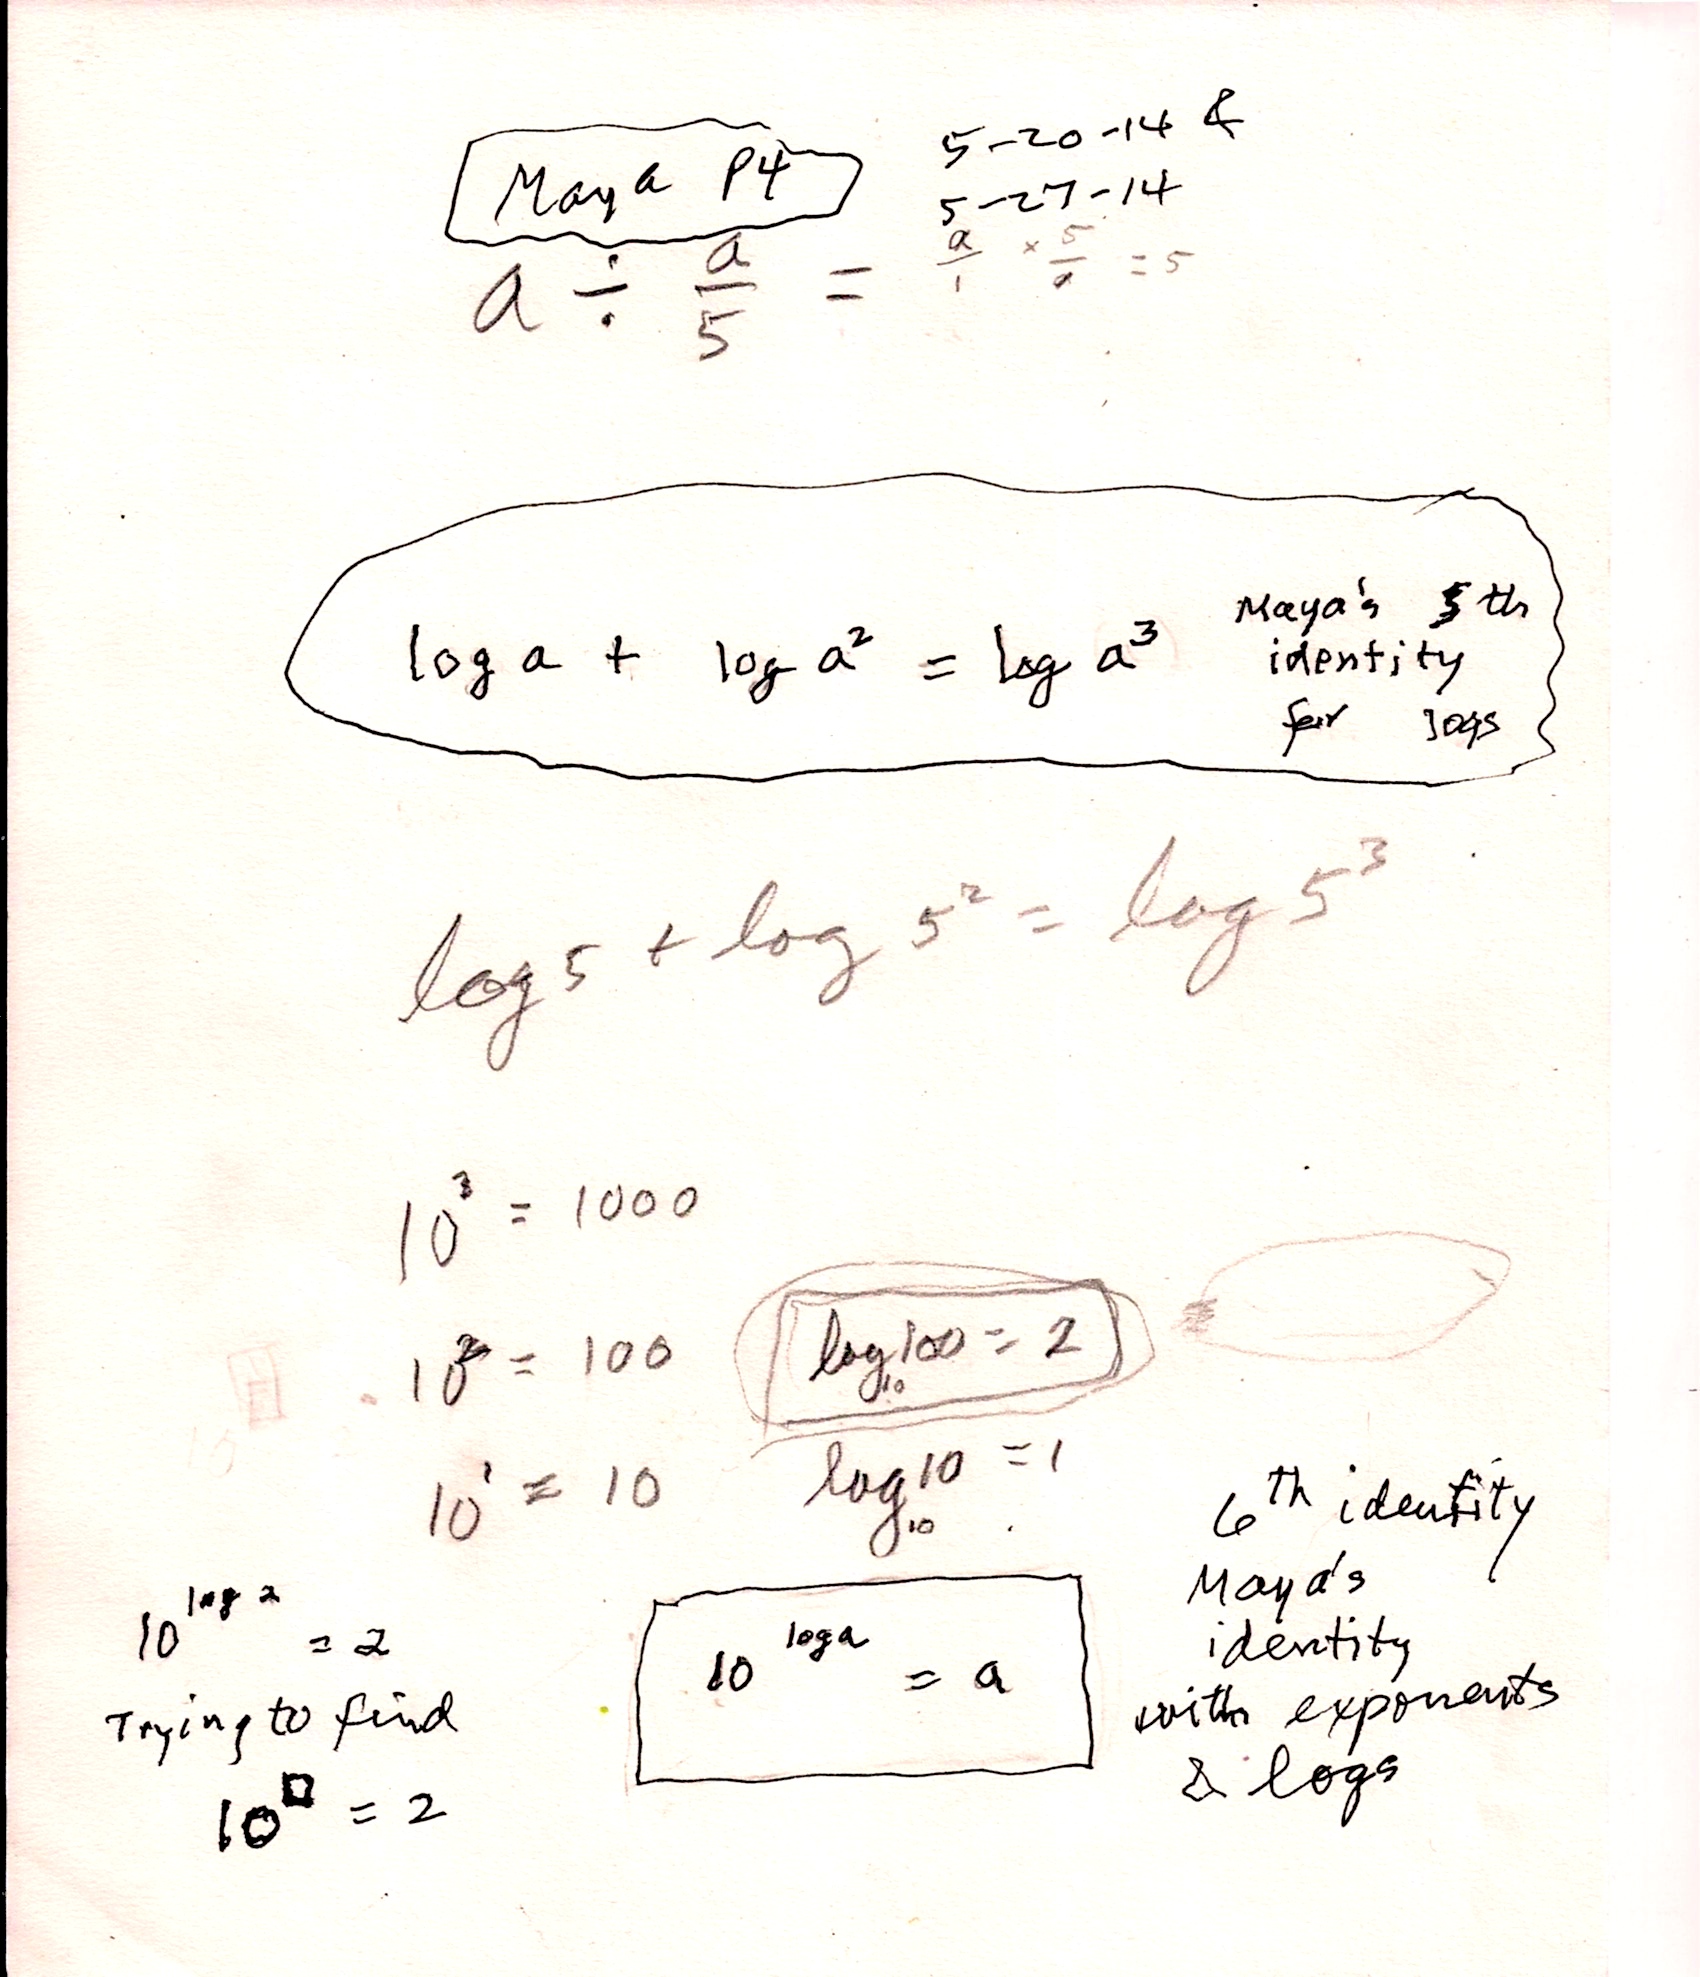 Maya P4
5-20-14 &
5-27-14
a ÷ a/5 = a/1 × 5/a = 5
log a + log a² = log a³
Maya's 5th
identity
for logs
log 5 + log 5² = log 5³
10³ = 1000
10² = 100 log₁₀100 = 2
10¹ = 10 log₁₀10 = 1
10^(log 2) = 2
Trying to find
10^□ = 2
10^(log a) = a
6th identity
Maya's
identity
with exponents
& logs